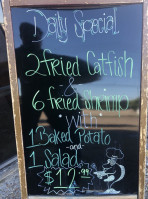 Daily Special
2 fried Catfish
&
6 fried Shrimp
with
1 Baked Potato
-and-
1 Salad
$12.99